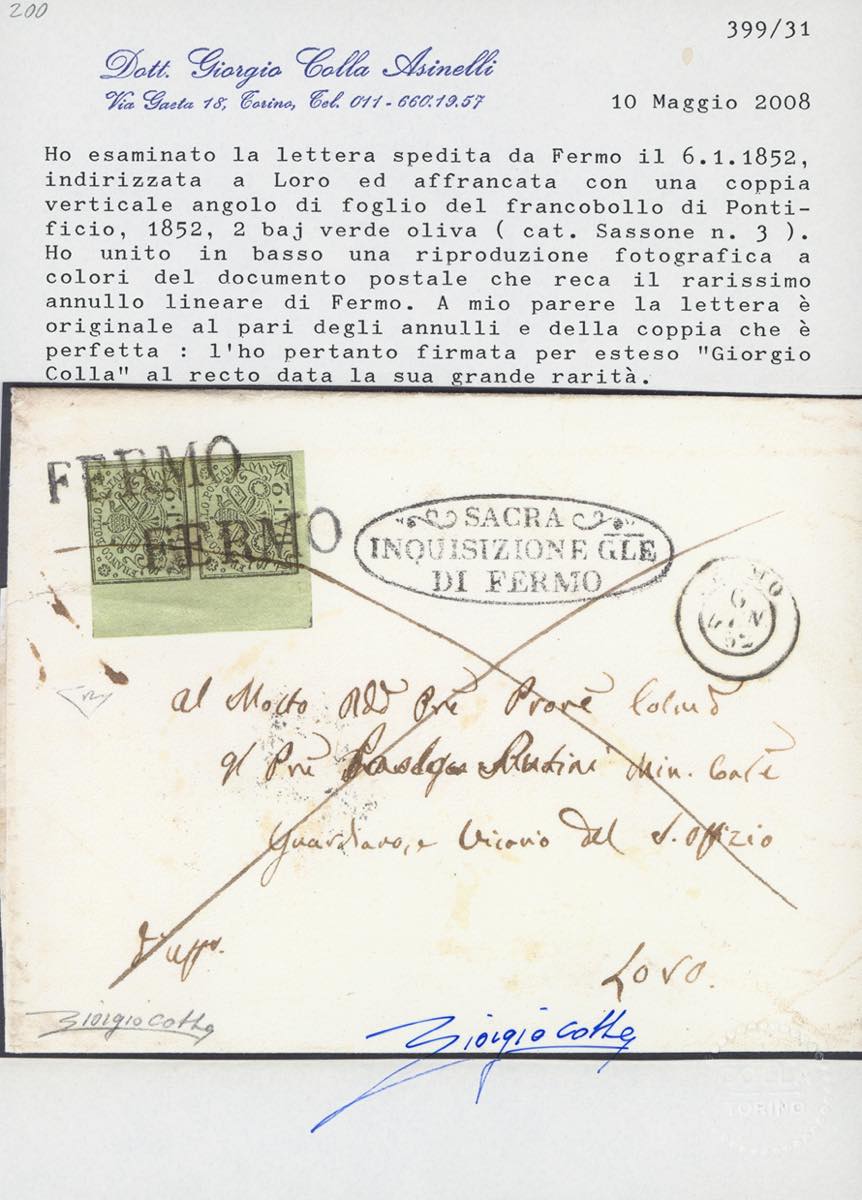 200
399/31
Dott. Giorgio Colla Asinelli
Via Gaeta 18, Torino, Tel. 011-660.19.57
10 Maggio 2008
Ho esaminato la lettera spedita da Fermo il 6.1.1852,
indirizzata a Loro ed affrancata con una coppia
verticale angolo di foglio del francobollo di Ponti-
ficio, 1852, 2 baj verde oliva ( cat. Sassone n. 3 ).
Ho unito in basso una riproduzione fotografica a
colori del documento postale che reca il rarissimo
annullo lineare di Fermo. A mio parere la lettera è
originale al pari degli annulli e della coppia che è
perfetta : l'ho pertanto firmata per esteso "Giorgio
Colla" al recto data la sua grande rarità.
FERMO
FERMO
FRANCO BOLLO POSTALE BAJ. 2
FRANCO BOLLO POSTALE BAJ. 2
SACRA
INQUISIZIONE GLE
DI FERMO
FERMO
6
52
Al Molto Rdo Pre Prone
Pre Min. Conle
Guardiano, e Vicario del S. Offizio
Loro.
Giorgio Colla
Giorgio Colla
TORINO